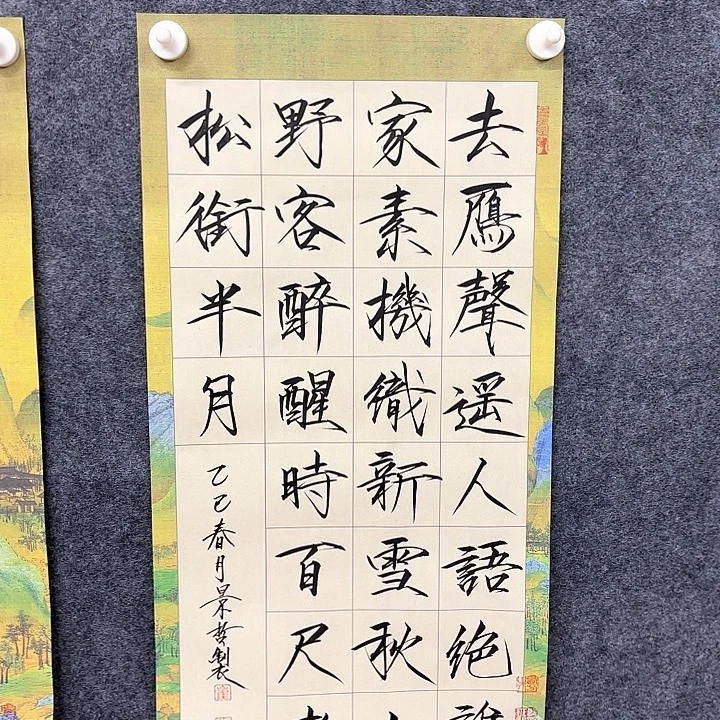 去鴈聲遥人語絶
家素機織新雪秋
野客醉醒時百尺
松銜半月
乙巳春月景哲製